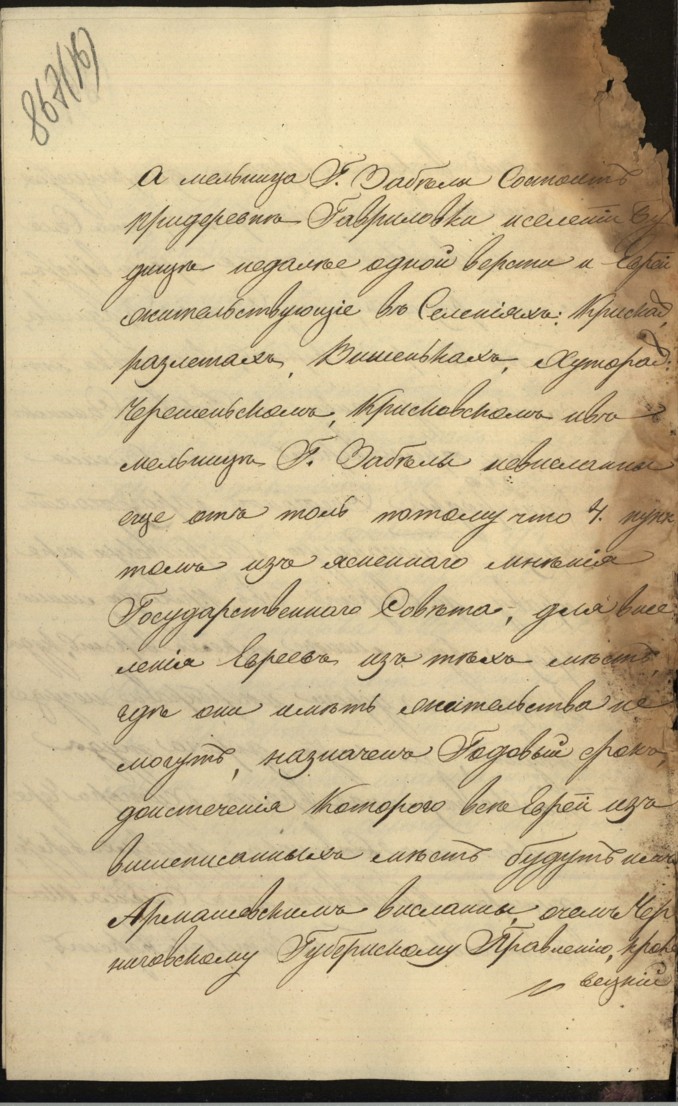 867(16)
А мельница Г. Забелы Состоитъ
придеревне Гавриловки иселеніи Бу
дище недалѣе одной версты и Еврей
жительствующіе въ Селеніяхъ:
разлетахъ, Вишенькахъ, Хуторах:
Черешеньскомъ, Крисковскомъ ивъ
мельнице Г. Забелы невисланны
еще отъ толь потому что 4. пунк
томъ изъ ясненнаго мнѣнія
Государственнаго Совѣта, для висе
ленія Евреевъ изъ тѣхъ мѣстъ,
где они имѣть жительства не
могутъ, назначенъ Годовый срокъ,
доистеченія Котораго все Еврей изъ
вишеписанныхъ мѣстъ будутъ имъ
Армашевскимъ висланны, очемъ Чер
ниговскому Губернскому Правленію,
вецкій